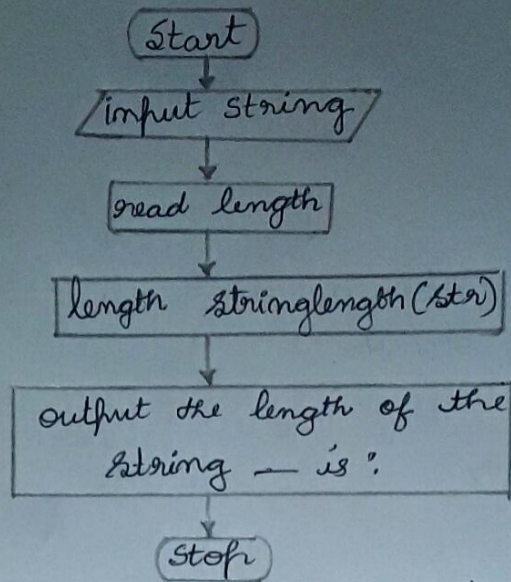 Start
input string
read length
length stringlength(str)
output the length of the
string — is:
Stop